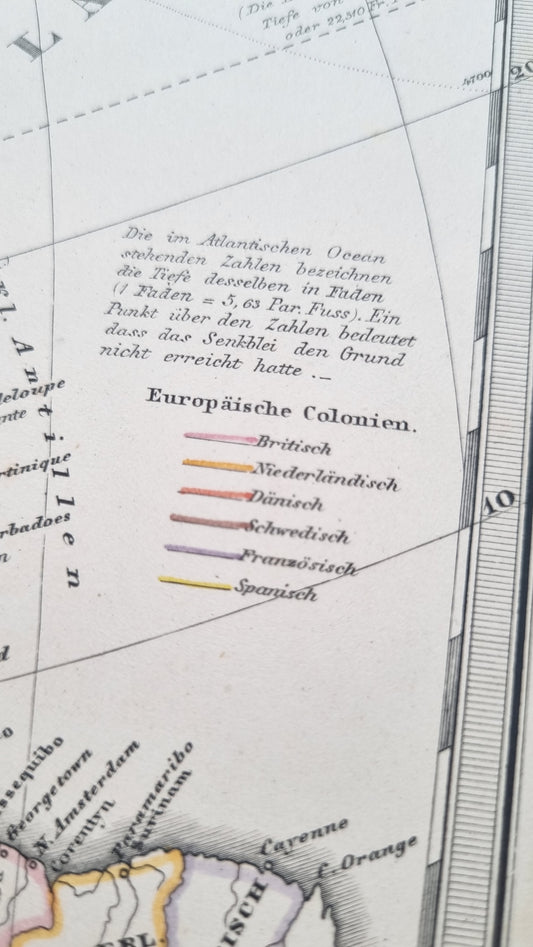 LA
(Die
Tiefe von
oder 22,310 Fr.
4700
20
Die im Atlantischen Ocean
stehenden Zahlen bezeichnen
die Tiefe desselben in Faden
(1 Faden = 5,63 Par. Fuss). Ein
Punkt über den Zahlen bedeutet
dass das Senkblei den Grund
nicht erreicht hatte .—
Europäische Colonien.
Britisch
Niederländisch
Dänisch
Schwedisch
Französisch
Spanisch
10
Kl. Antillen
deloupe
nte
rtinique
rbadoes
n
d
o
ssequibo
Georgetown
N. Amsterdam
Corentyn
Paramaribo
Surinam
Cayenne
C. Orange
ERL.
ISCH